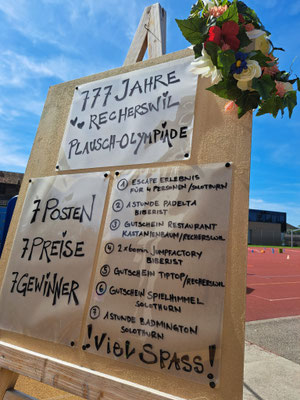 777 JAHRE
RECHERSWIL
PLAUSCH-OLYMPIADE
7 POSTEN
7 PREISE
7 GEWINNER
1 ESCAPE ERLEBNIS
FÜR 4 PERSONEN/SOLOTHURN
2 1 STUNDE PADELTA
BIBERIST
3 GUTSCHEIN RESTAURANT
KASTANIENBAUM/RECHERSWIL
4 2x60min JUMPFACTORY
BIBERIST
5 GUTSCHEIN TIPTOP/RECHERSWIL
6 GUTSCHEIN SPIELHIMMEL
SOLOTHURN
7 1 STUNDE BADMINGTON
SOLOTHURN
! VIEL SPASS!